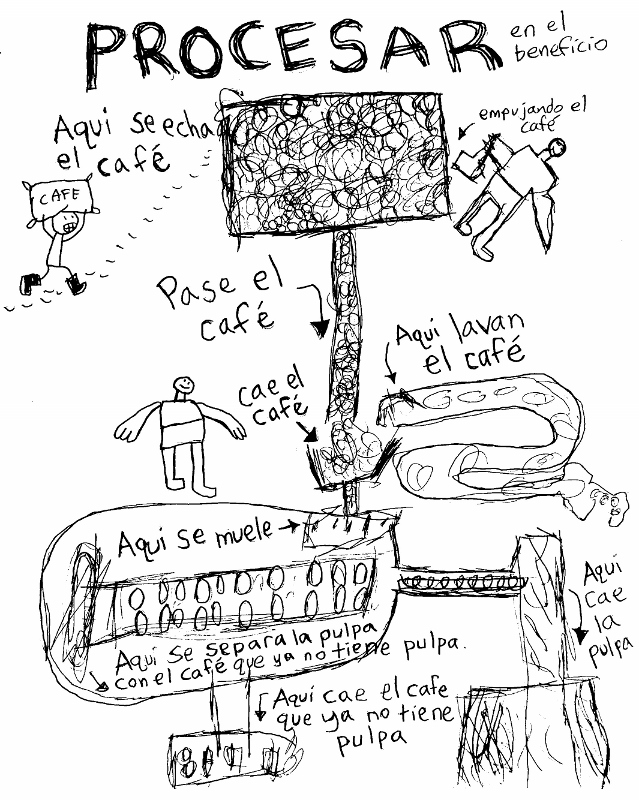 PROCESAR
en el
beneficio
Aqui se echa
el café
CAFE
empujando el
café
Pase el
café
Aqui lavan
el café
cae el
café
Aqui se muele
Aqui se separa la pulpa
con el café que ya no tiene pulpa.
Aqui
cae
la
pulpa
Aqui cae el cafe
que ya no tiene
pulpa